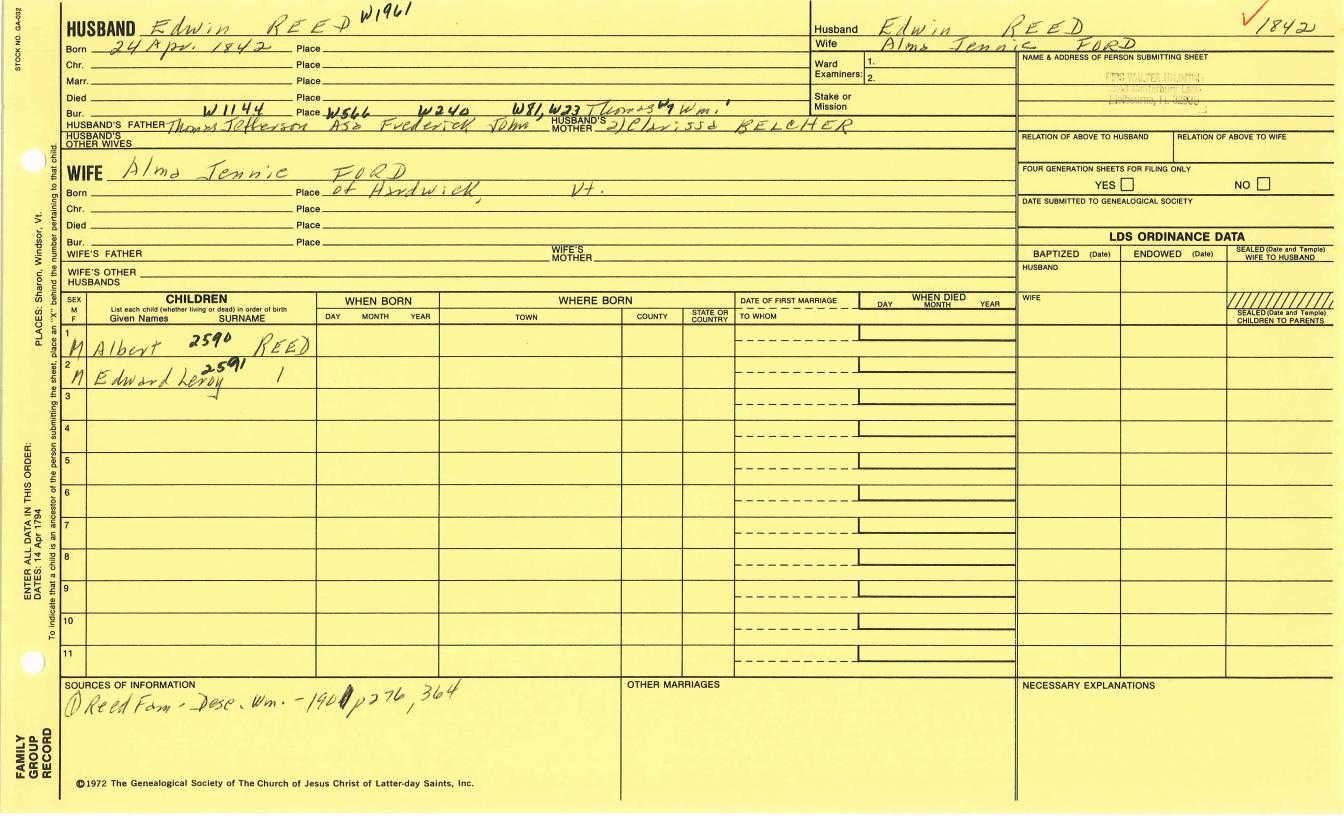 STOCK NO. GA-032
HUSBAND Edwin REED W1961
Born 24 Apr. 1842 Place
Chr. Place
Marr. Place
Died Place
Bur. Place
W1144 W566 W240 W81, W23 Thomas W9 Wm.'
HUSBAND'S FATHER Thomas Jefferson Asa Frederick John HUSBAND'S MOTHER 2) Clarissa BELCHER
HUSBAND'S OTHER WIVES
Husband Edwin REED ✓ 1842
Wife Alma Jennie FORD
Ward Examiners: 1.
2.
Stake or Mission
NAME & ADDRESS OF PERSON SUBMITTING SHEET
RELATION OF ABOVE TO HUSBAND RELATION OF ABOVE TO WIFE
FOUR GENERATION SHEETS FOR FILING ONLY
YES NO
DATE SUBMITTED TO GENEALOGICAL SOCIETY
WIFE Alma Jennie FORD
Born Place of Hardwick, Vt.
Chr. Place
Died Place
Bur. Place
WIFE'S FATHER WIFE'S MOTHER
WIFE'S OTHER HUSBANDS
LDS ORDINANCE DATA
BAPTIZED (Date) ENDOWED (Date) SEALED (Date and Temple) WIFE TO HUSBAND
HUSBAND
WIFE
SEALED (Date and Temple) CHILDREN TO PARENTS
SEX M F
CHILDREN
List each child (whether living or dead) in order of birth
Given Names SURNAME
WHEN BORN
DAY MONTH YEAR
WHERE BORN
TOWN COUNTY STATE OR COUNTRY
DATE OF FIRST MARRIAGE
TO WHOM
WHEN DIED
DAY MONTH YEAR
1 M Albert 2590 REED
2 M Edward Leroy 2591 |
3
4
5
6
7
8
9
10
11
SOURCES OF INFORMATION
① Reed Fam - Desc. Wm. - 1901 p276, 364
OTHER MARRIAGES
NECESSARY EXPLANATIONS
©1972 The Genealogical Society of The Church of Jesus Christ of Latter-day Saints, Inc.
FAMILY GROUP RECORD
ENTER ALL DATA IN THIS ORDER:
DATES: 14 Apr 1794 PLACES: Sharon, Windsor, Vt.
To indicate that a child is an ancestor of the person submitting the sheet, place an "X" behind the number pertaining to that child.